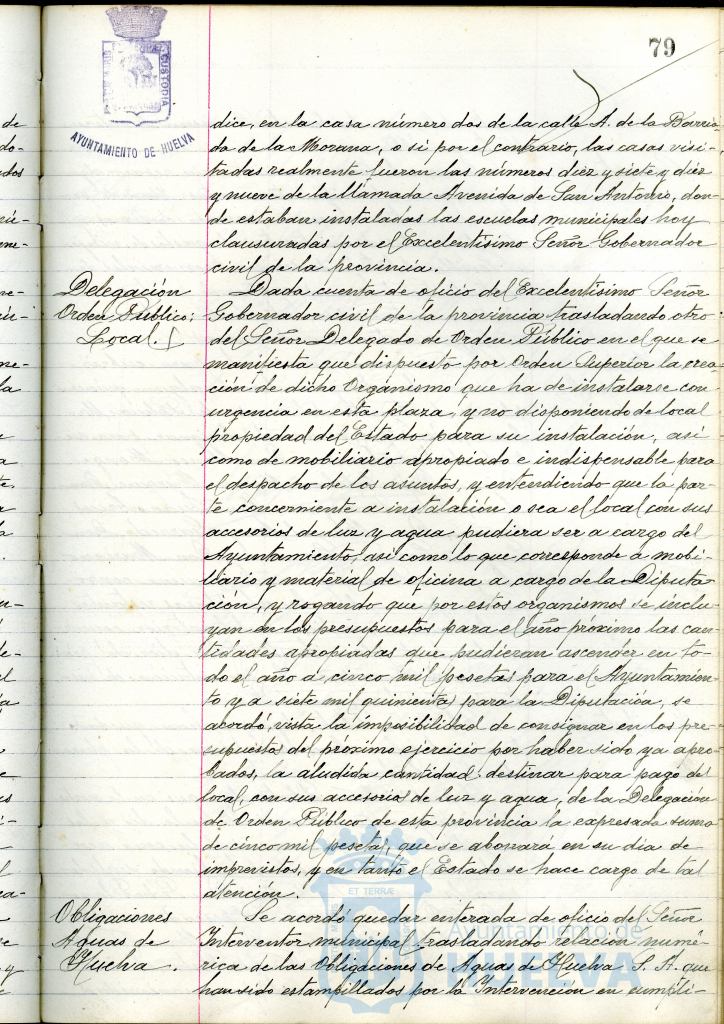 79
AYUNTAMIENTO DE HUELVA
dice, en la casa número dos de la calle A. de la Barria-
da de la Morana, o si por el contrario, las casas visi-
tadas realmente fueron las números diez y siete y diez
y nueve de la llamada Avenida de San Antonio, don-
de estaban instaladas las escuelas municipales hoy
clausuradas por el Excelentísimo Señor Gobernador
civil de la provincia.
Delegación
Orden Público;
Local.
Dada cuenta de oficio del Excelentísimo Señor
Gobernador civil de la provincia trasladando otro
del Señor Delegado de Orden Público en el que se
manifiesta que dispuesto por Orden Superior la crea-
ción de dicho Organismo que ha de instalarse con
urgencia en esta plaza, y no disponiendo de local
propiedad del Estado para su instalación, así
como de mobiliario apropiado e indispensable para
el despacho de los asuntos, y entendiendo que la par-
te concerniente a instalación o sea el local con sus
accesorios de luz y agua pudiera ser a cargo del
Ayuntamiento, así como lo que corresponde a mobi-
liario y material de oficina a cargo de la Diputa-
ción, y rogando que por estos organismos se inclu-
yan en los presupuestos para el año próximo las can-
tidades apropiadas que pudieran ascender en to-
do el año a cinco mil pesetas para el Ayuntamien-
to y a siete mil quinientas para la Diputación, se
acordó, vista la imposibilidad de consignar en los pre-
supuestos del próximo ejercicio por haber sido ya apro-
bados, la aludida cantidad, destinar para pago del
local, con sus accesorios de luz y agua, de la Delegación
de Orden Público de esta provincia la expresada suma
de cinco mil pesetas, que se abonará en su día de
imprevistos, y en tanto el Estado se hace cargo de tal
atención.
Obligaciones
Aguas de
Huelva.
Se acordó quedar enterada de oficio del Señor
Interventor municipal trasladando relación numé-
rica de las Obligaciones de Aguas de Huelva S. A. que
han sido estampillados por la Intervención en cumpli-
ET TERRÆ
Ayuntamiento de
HUELVA